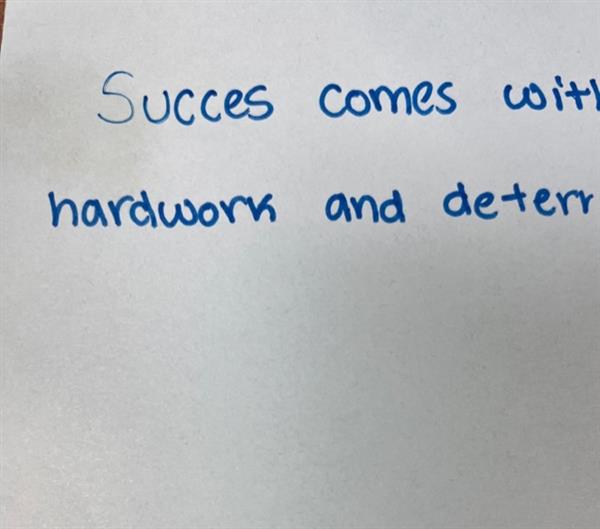 Succes comes with
hardwork and